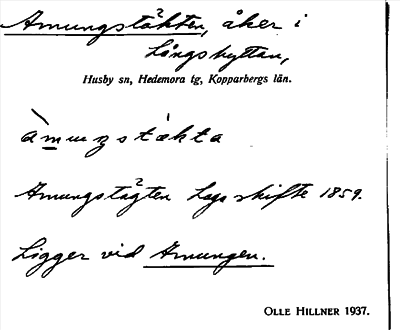 Amungstäkten, åker i
Långshyttan,
Husby sn, Hedemora tg, Kopparbergs län.
àmuŋstäkta
Amungstägten Laga skifte 1859.
Ligger vid Amungen.
OLLE HILLNER 1937.